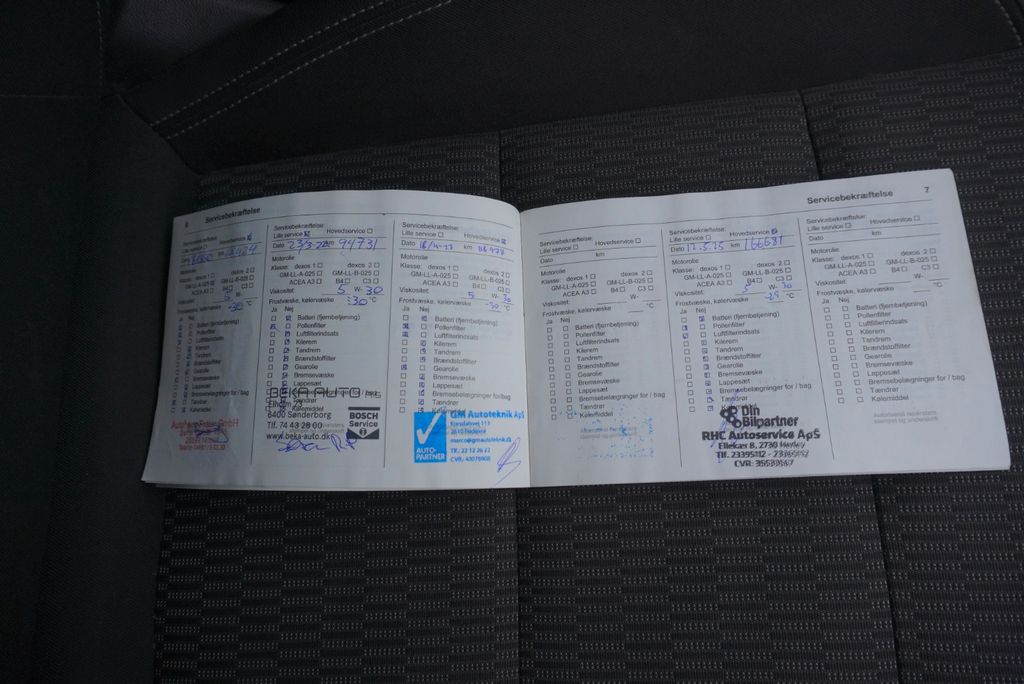 Servicebekræftelse
Servicebekræftelse
Lille service Hovedservice
Dato
Motorolie
Klasse: dexos 1 dexos 2
GM-LL-A-025 GM-LL-B-025
ACEA A3 B4 C3
Viskositet:
Frostvæske, kølervæske -30 °C
Ja Nej
Batteri (fjernbetjening)
Pollenfilter
Luftfilterindsats
Kilerem
Tandrem
Brændstoffilter
Gearolie
Bremsevæske
Lappesæt
Bremsebelægninger for / bag
Tændrør
Kølemiddel
Servicebekræftelse:
Lille service Hovedservice
Dato 23/3-22 km 94731
Motorolie
Klasse: dexos 1 dexos 2
GM-LL-A-025 GM-LL-B-025
ACEA A3 B4 C3
Viskositet: 5 W- 30
Frostvæske, kølervæske -30 °C
Ja Nej
Batteri (fjernbetjening)
Pollenfilter
Luftfilterindsats
Kilerem
Tandrem
Brændstoffilter
Gearolie
Bremsevæske
Lappesæt
Bremsebelægninger for / bag
Tændrør
Kølemiddel
BEKA-AUTO
6400 Sønderborg
Tlf. 74 43 28 00
www.beka-auto.dk
BOSCH
Service
Servicebekræftelse:
Lille service Hovedservice
Dato km
Motorolie
Klasse: dexos 1 dexos 2
GM-LL-A-025 GM-LL-B-025
ACEA A3 B4 C3
Viskositet: 5 W- 30
Frostvæske, kølervæske -30 °C
Ja Nej
Batteri (fjernbetjening)
Pollenfilter
Luftfilterindsats
Kilerem
Tandrem
Brændstoffilter
Gearolie
Bremsevæske
Lappesæt
Bremsebelægninger for / bag
Tændrør
Kølemiddel
AUTO-
PARTNER
GM Autoteknik ApS
marco@gmautoteknik.dk
Tlf.: 22 12 26 22
CVR.: 40075908
Servicebekræftelse
7
Servicebekræftelse:
Lille service Hovedservice
Dato km
Motorolie
Klasse: dexos 1 dexos 2
GM-LL-A-025 GM-LL-B-025
ACEA A3 B4 C3
Viskositet: W-
Frostvæske, kølervæske °C
Ja Nej
Batteri (fjernbetjening)
Pollenfilter
Luftfilterindsats
Kilerem
Tandrem
Brændstoffilter
Gearolie
Bremsevæske
Lappesæt
Bremsebelægninger for / bag
Tændrør
Kølemiddel
Servicebekræftelse:
Lille service Hovedservice
Dato 12.5.25 km 166681
Motorolie
Klasse: dexos 1 dexos 2
GM-LL-A-025 GM-LL-B-025
ACEA A3 B4 C3
Viskositet: 5 W- 30
Frostvæske, kølervæske -25 °C
Ja Nej
Batteri (fjernbetjening)
Pollenfilter
Luftfilterindsats
Kilerem
Tandrem
Brændstoffilter
Gearolie
Bremsevæske
Lappesæt
Bremsebelægninger for / bag
Tændrør
Kølemiddel
Din
Bilpartner
RHC Autoservice ApS
Ellekær 8, 2730 Herlev
Tlf. 23395112 -
CVR:
Servicebekræftelse:
Lille service Hovedservice
Dato km
Motorolie
Klasse: dexos 1 dexos 2
GM-LL-A-025 GM-LL-B-025
ACEA A3 B4 C3
Viskositet: W-
Frostvæske, kølervæske °C
Ja Nej
Batteri (fjernbetjening)
Pollenfilter
Luftfilterindsats
Kilerem
Tandrem
Brændstoffilter
Gearolie
Bremsevæske
Lappesæt
Bremsebelægninger for / bag
Tændrør
Kølemiddel
Autoriseret reparatørs
stempel og underskrift